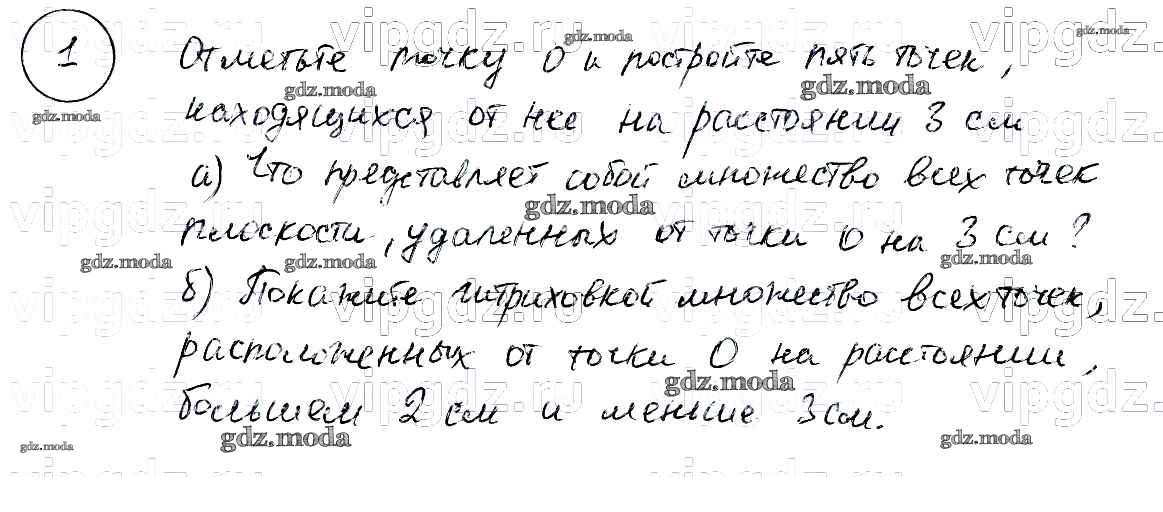 1
Отметьте точку О и постройте пять точек,
находящихся от нее на расстоянии 3 см
а) Что представляет собой множество всех точек
плоскости, удаленных от точки О на 3 см?
б) Покажите штриховкой множество всех точек,
расположенных от точки О на расстоянии,
большем 2 см и меньше 3 см.
vipgdz.ru
gdz.moda